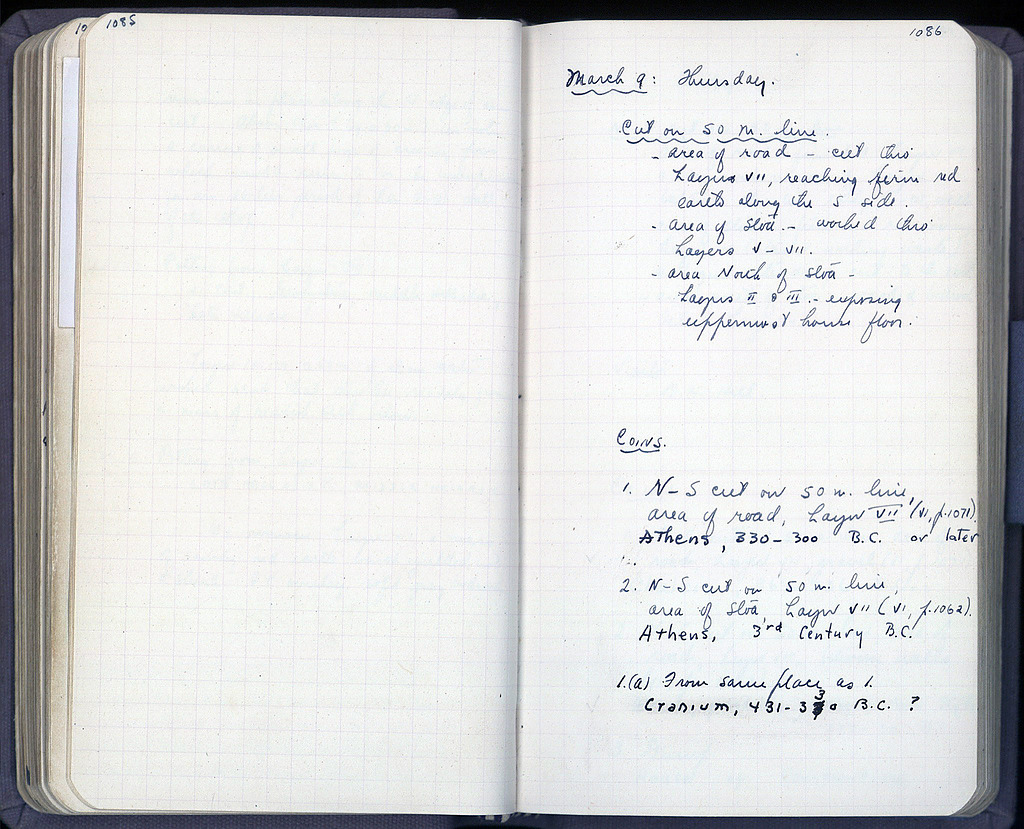 10
1085
1086
March 9: Thursday.
Cut on 50 m. line.
- area of road - cut this
Layer VII, reaching firm red
earth along the S side.
- area of Stoa - worked this
Layers V - VII.
- area North of Stoa -
Layers II & III - exposing
uppermost house floor.
Coins.
1. N-S cut on 50 m. line,
area of road, Layer VII (VI, p.1071).
Athens, 330-300 B.C. or later
2. N-S cut on 50 m. line,
area of Stoa, Layer VII (VI, p.1062).
Athens, 3rd Century B.C.
1.(a) From same place as 1.
Cranium, 431-330 B.C. ?